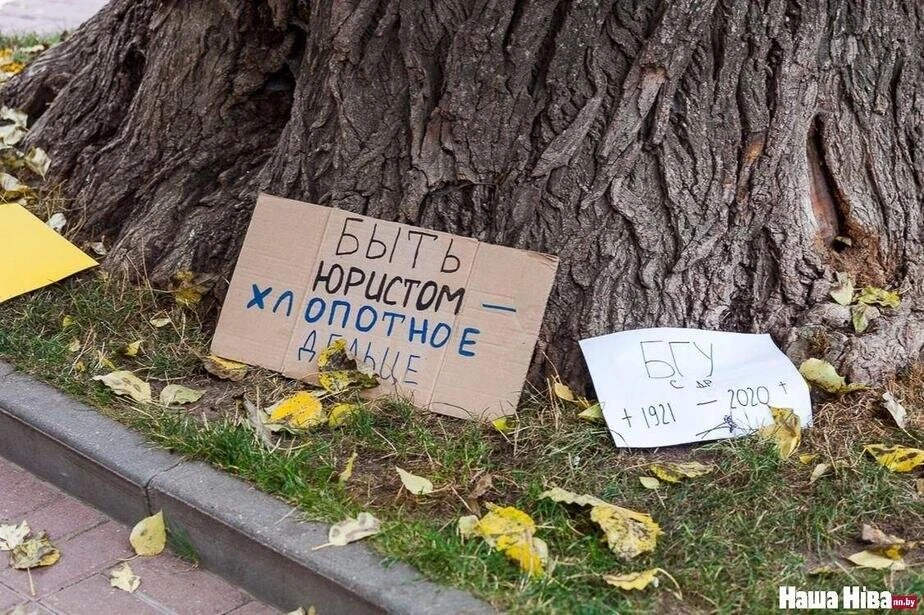 БЫТЬ
ЮРИСТОМ –
ХЛОПОТНОЕ
ДЕЛЬЦЕ
БГУ
С ДР
+ 1921 – 2020 +
Наша Ніва nn.by